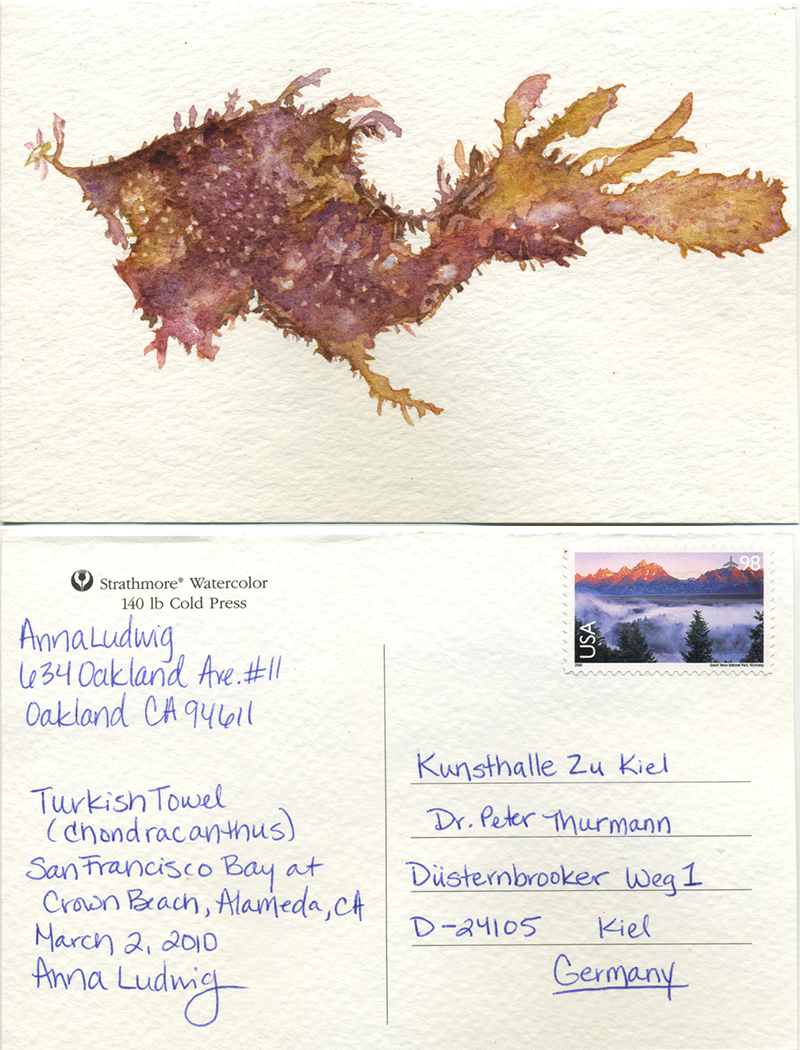 Strathmore® Watercolor
140 lb Cold Press
Anna Ludwig
634 Oakland Ave. #11
Oakland CA 94611
Turkish Towel
(Chondracanthus)
San Francisco Bay at
Crown Beach, Alameda, CA
March 2, 2010
Anna Ludwig
98
USA
Kunsthalle Zu Kiel
Dr. Peter Thurmann
Düsternbrooker Weg 1
D-24105 Kiel
Germany